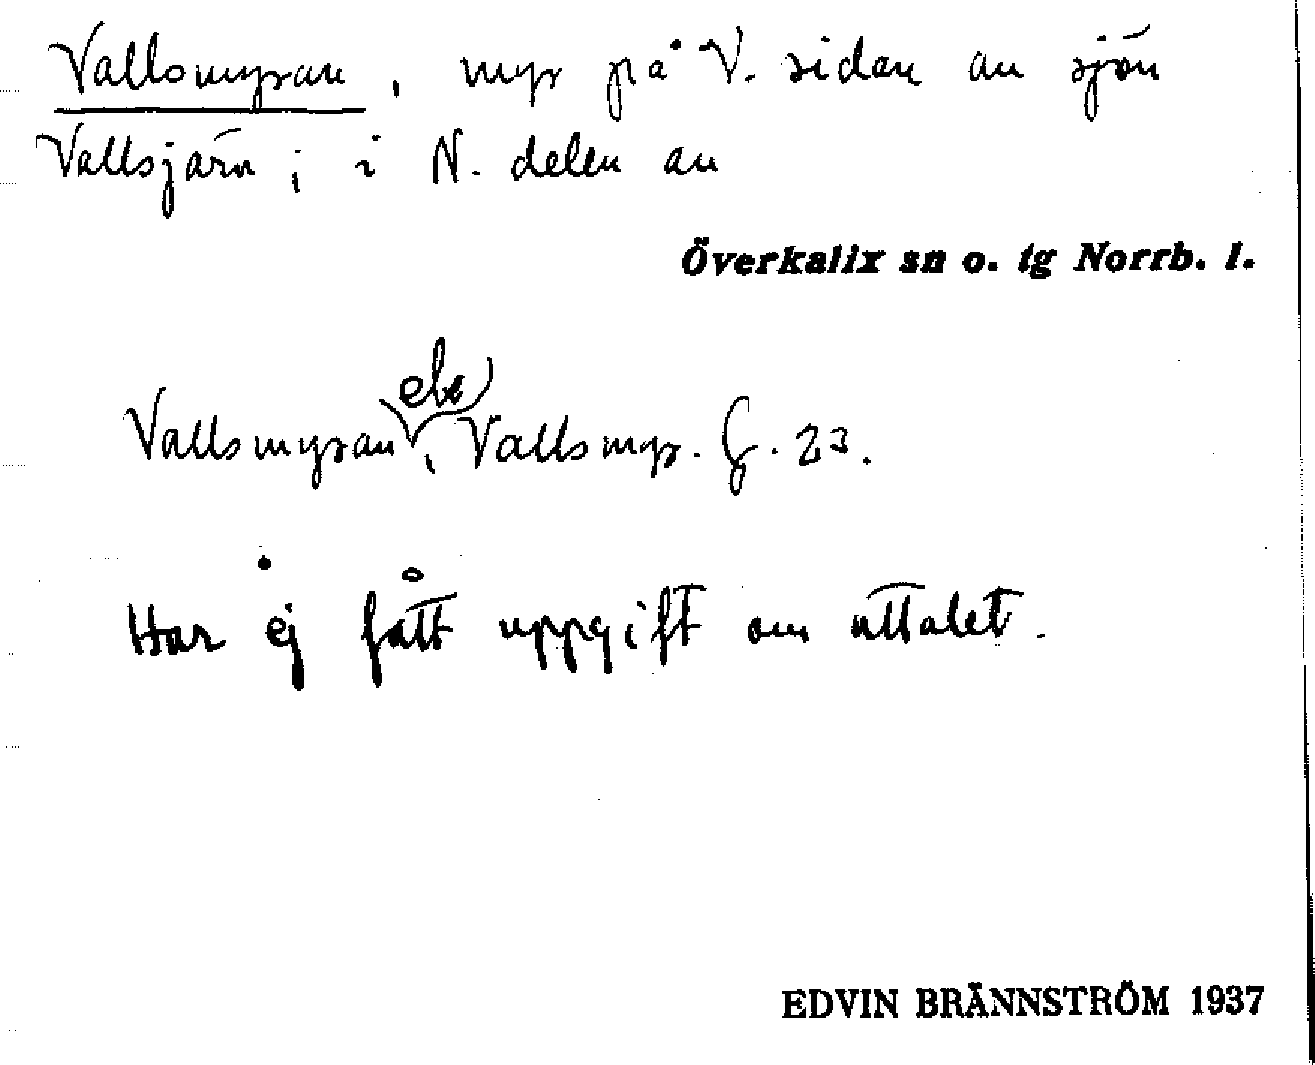 Vallsmyran, myr på V. sidan av sjön
Vallsjärv; i N. delen av
Överkalix sn o. tg Norrb. l.
Vallsmyran, el. Vallsmyr. G. 23.
Har ej fått uppgift om uttalet.
EDVIN BRÄNNSTRÖM 1937